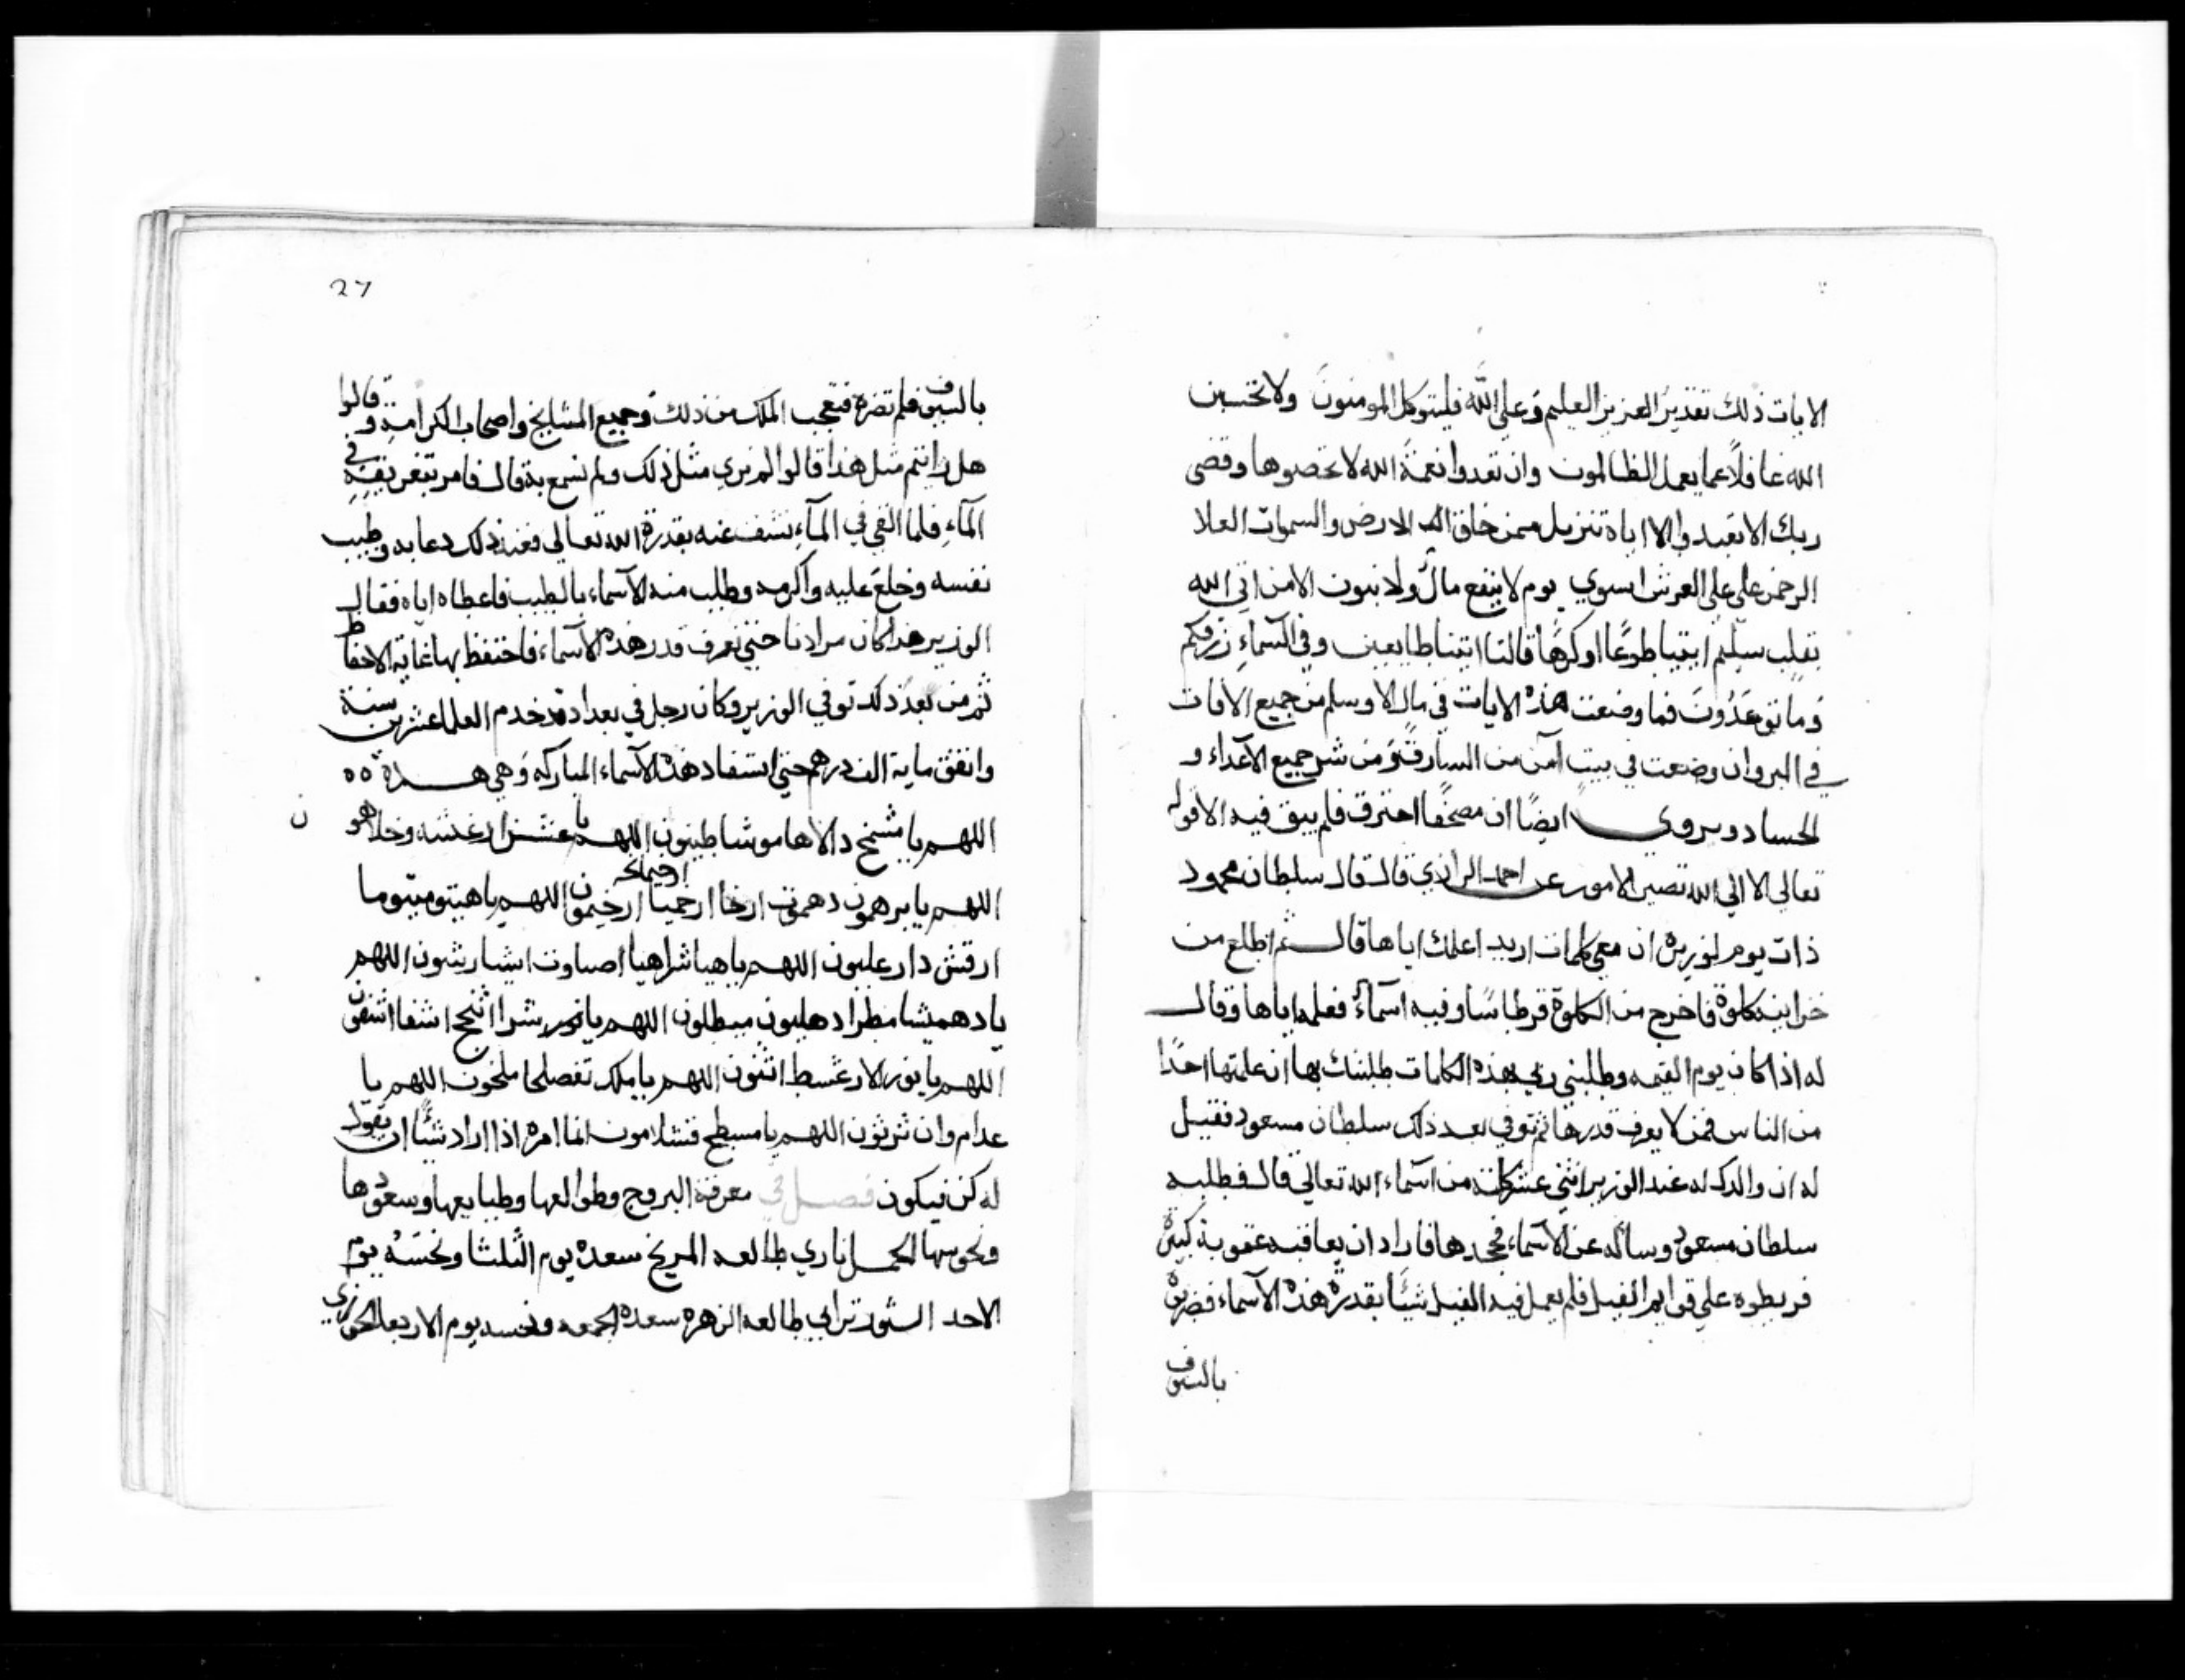 الايات ذلك تقدير العزيز العليم وعلى الله فليتوكل المومنون ولا تحسبن
الله غافلاً عما يعمل الظالمون وان تعدوا نعمة الله لا تحصوها وقضى
ربك الا تعبدوا الا اياه تنزيل ممن خلق الارض والسموات العلا
الرحمن علي علي العرش استوي يوم لا ينفع مال ولا بنون الا من اتي الله
بقلب سليم ايتيا طوعًا او كرهًا قالتا اتينا طايعين وفي السماء رزقكم
وما توعدون فما وضعت هذه الايات في مال الا وسلم من جميع الافات
في البر وان وضعت في بيت آمن من السارق ومن شر جميع الاعداء و
الحساد ويروى ايضًا ان مصحفًا احترق فلم يبق فيه الا قوله
تعالي الا الي الله تصير الامور عن احمد الرازي قال قال سلطان محمود
ذات يوم لوزيره ان معي كلمات اريد اعلمك اياها قال ثم اطلع من
خزاينه كلوة فاخرج من الكلوة قرطاسًا وفيه اسماءً فعلمه اياها وقال
له اذا كان يوم القيمه وطلبني ربي بهذه الكلمات طلبتك بها ان علمتها احدًا
من الناس فمن لا يعرف قدرها ثم توفي بعد ذلك سلطان مسعود فقيل
له ان والدك له عند الوزير اثني عشر كلمة من اسماء الله تعالي قال فطلبه
سلطان مسعود وساله عن الاسماء فجحدها فاراد ان يعاقبه عقوبة كبيرة
فربطوه علي قوايم الفيل فلم يعمل فيه الفيل شيئًا بقدرة هذه الاسماء فضربه
بالسيوف
27
بالسيوف فلم تضره فتعجب الملك من ذلك وجميع المشايخ واصحاب الكرامة وقالوا
هل رايتم مثل هذا قالوا لم نري مثل ذلك ولم نسمع به قال فامر بتغريقه في
المآء فلما القي في المآء نشف عنه بقدرة الله تعالي فعند ذلك دعا به وطيب
نفسه وخلع عليه واكرمه وطلب منه الاسماء بالطيب فاعطاه اياه فقال
الوزير هذا كان مرادنا حتي نعرف قدر هذه الاسماء فاحتفظ بها غاية الاحتفاظ
ثم من بعد ذلك توفي الوزير وكان رجل في بغداد قد خدم العلما عشرين سنة
وانفق ماية الف درهم حتي استفاد هذه الاسماء المباركه وهي هذه
اللهم يا مشخ دالاها موشاطيثون اللهم يا
اللهم يا برهمون دهموت ارخا ارخميا ارخيمون اللهم يا هيتوميتوما
ارقش دارعليون اللهم يا هيا شراهيا اصباوت اللهم
يا دهميشا مطرا دهليون ميطلون اللهم يا نور
اللهم يا نور الارغسط اثنون اللهم يا مليك تفصلحا ملخون اللهم يا
عدام وان ثرثون اللهم يا مسطح فتشلامون انما امره اذا اراد شيًا ان يقول
له كن فيكون فصل في معرفة البروج وطوالعها وطبايعها وسعودها
ونحوسها الحمل ناري طالعه المريخ سعده يوم الثلثا ونحسه يوم
الاحد الثور ترابي طالعه الزهره سعده الجمعه ونحسه يوم الاربعا